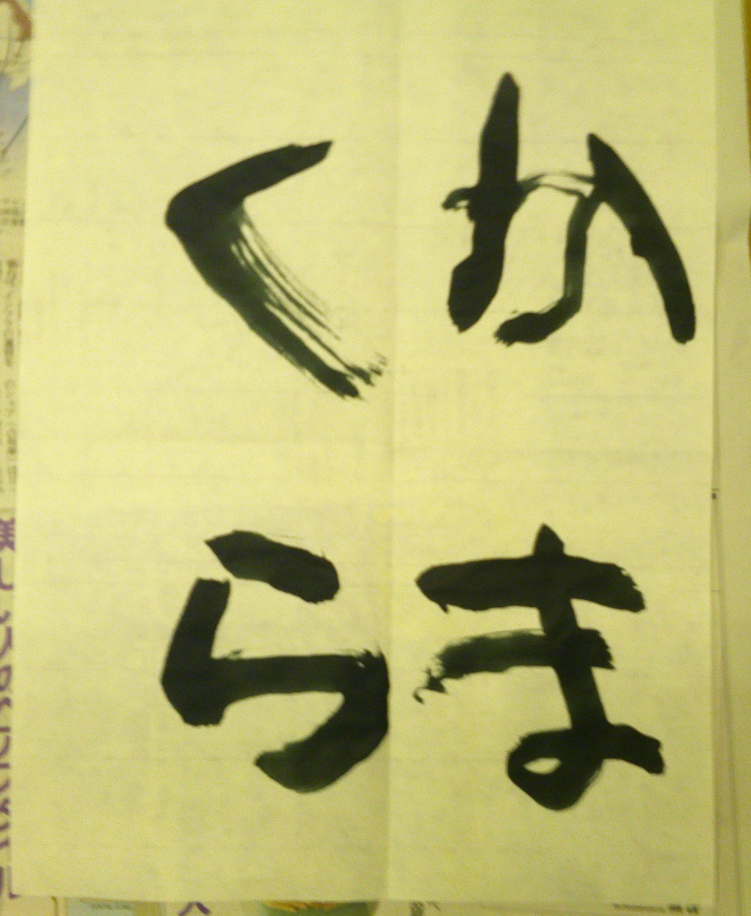 かま
くら